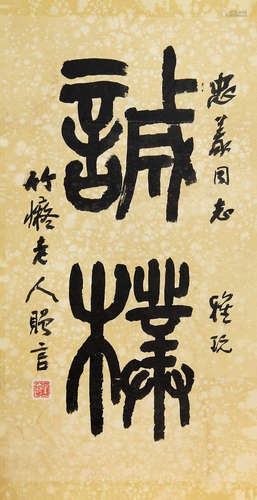 忠義同志 雅玩
誠樸
竹癡老人贈言